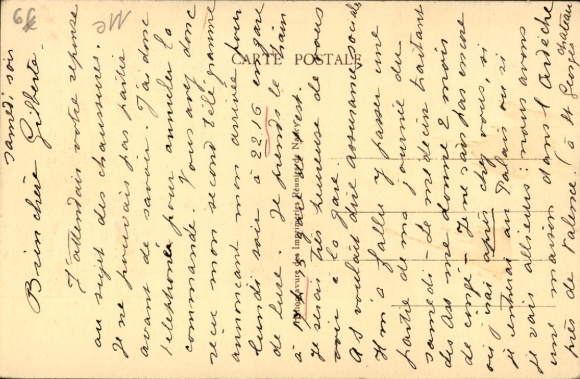 CARTE POSTALE
Héliogravure des Imprimeries Réunies de Nancy
samedi soir
Bien chère Gilberte.
J'attendais votre réponse
au sujet des chaussures.
Je ne pouvais pas partir
avant de savoir. J'ai donc
téléphoné pour annuler la
commande. Vous avez donc
reçu mon second télégramme
annonçant mon arrivée pour
lundi soir à 22.16 en gare
de Lure. Je prends le train
à l'est.
Je serai très heureuse de vous
voir à la gare.
As voulait dire assurance sociale
Il m'a fallu y passer une
partie de ma journée du
samedi - Le médecin traitant
des Ass me donne 2 mois
de congé - Je ne sais pas encore
où j'irai après chez vous, si
je rentrerai au Palais ou si
je vais ailleurs: nous avons
une maison dans l'Ardèche
près de Valence. (à St Georges
Chateau